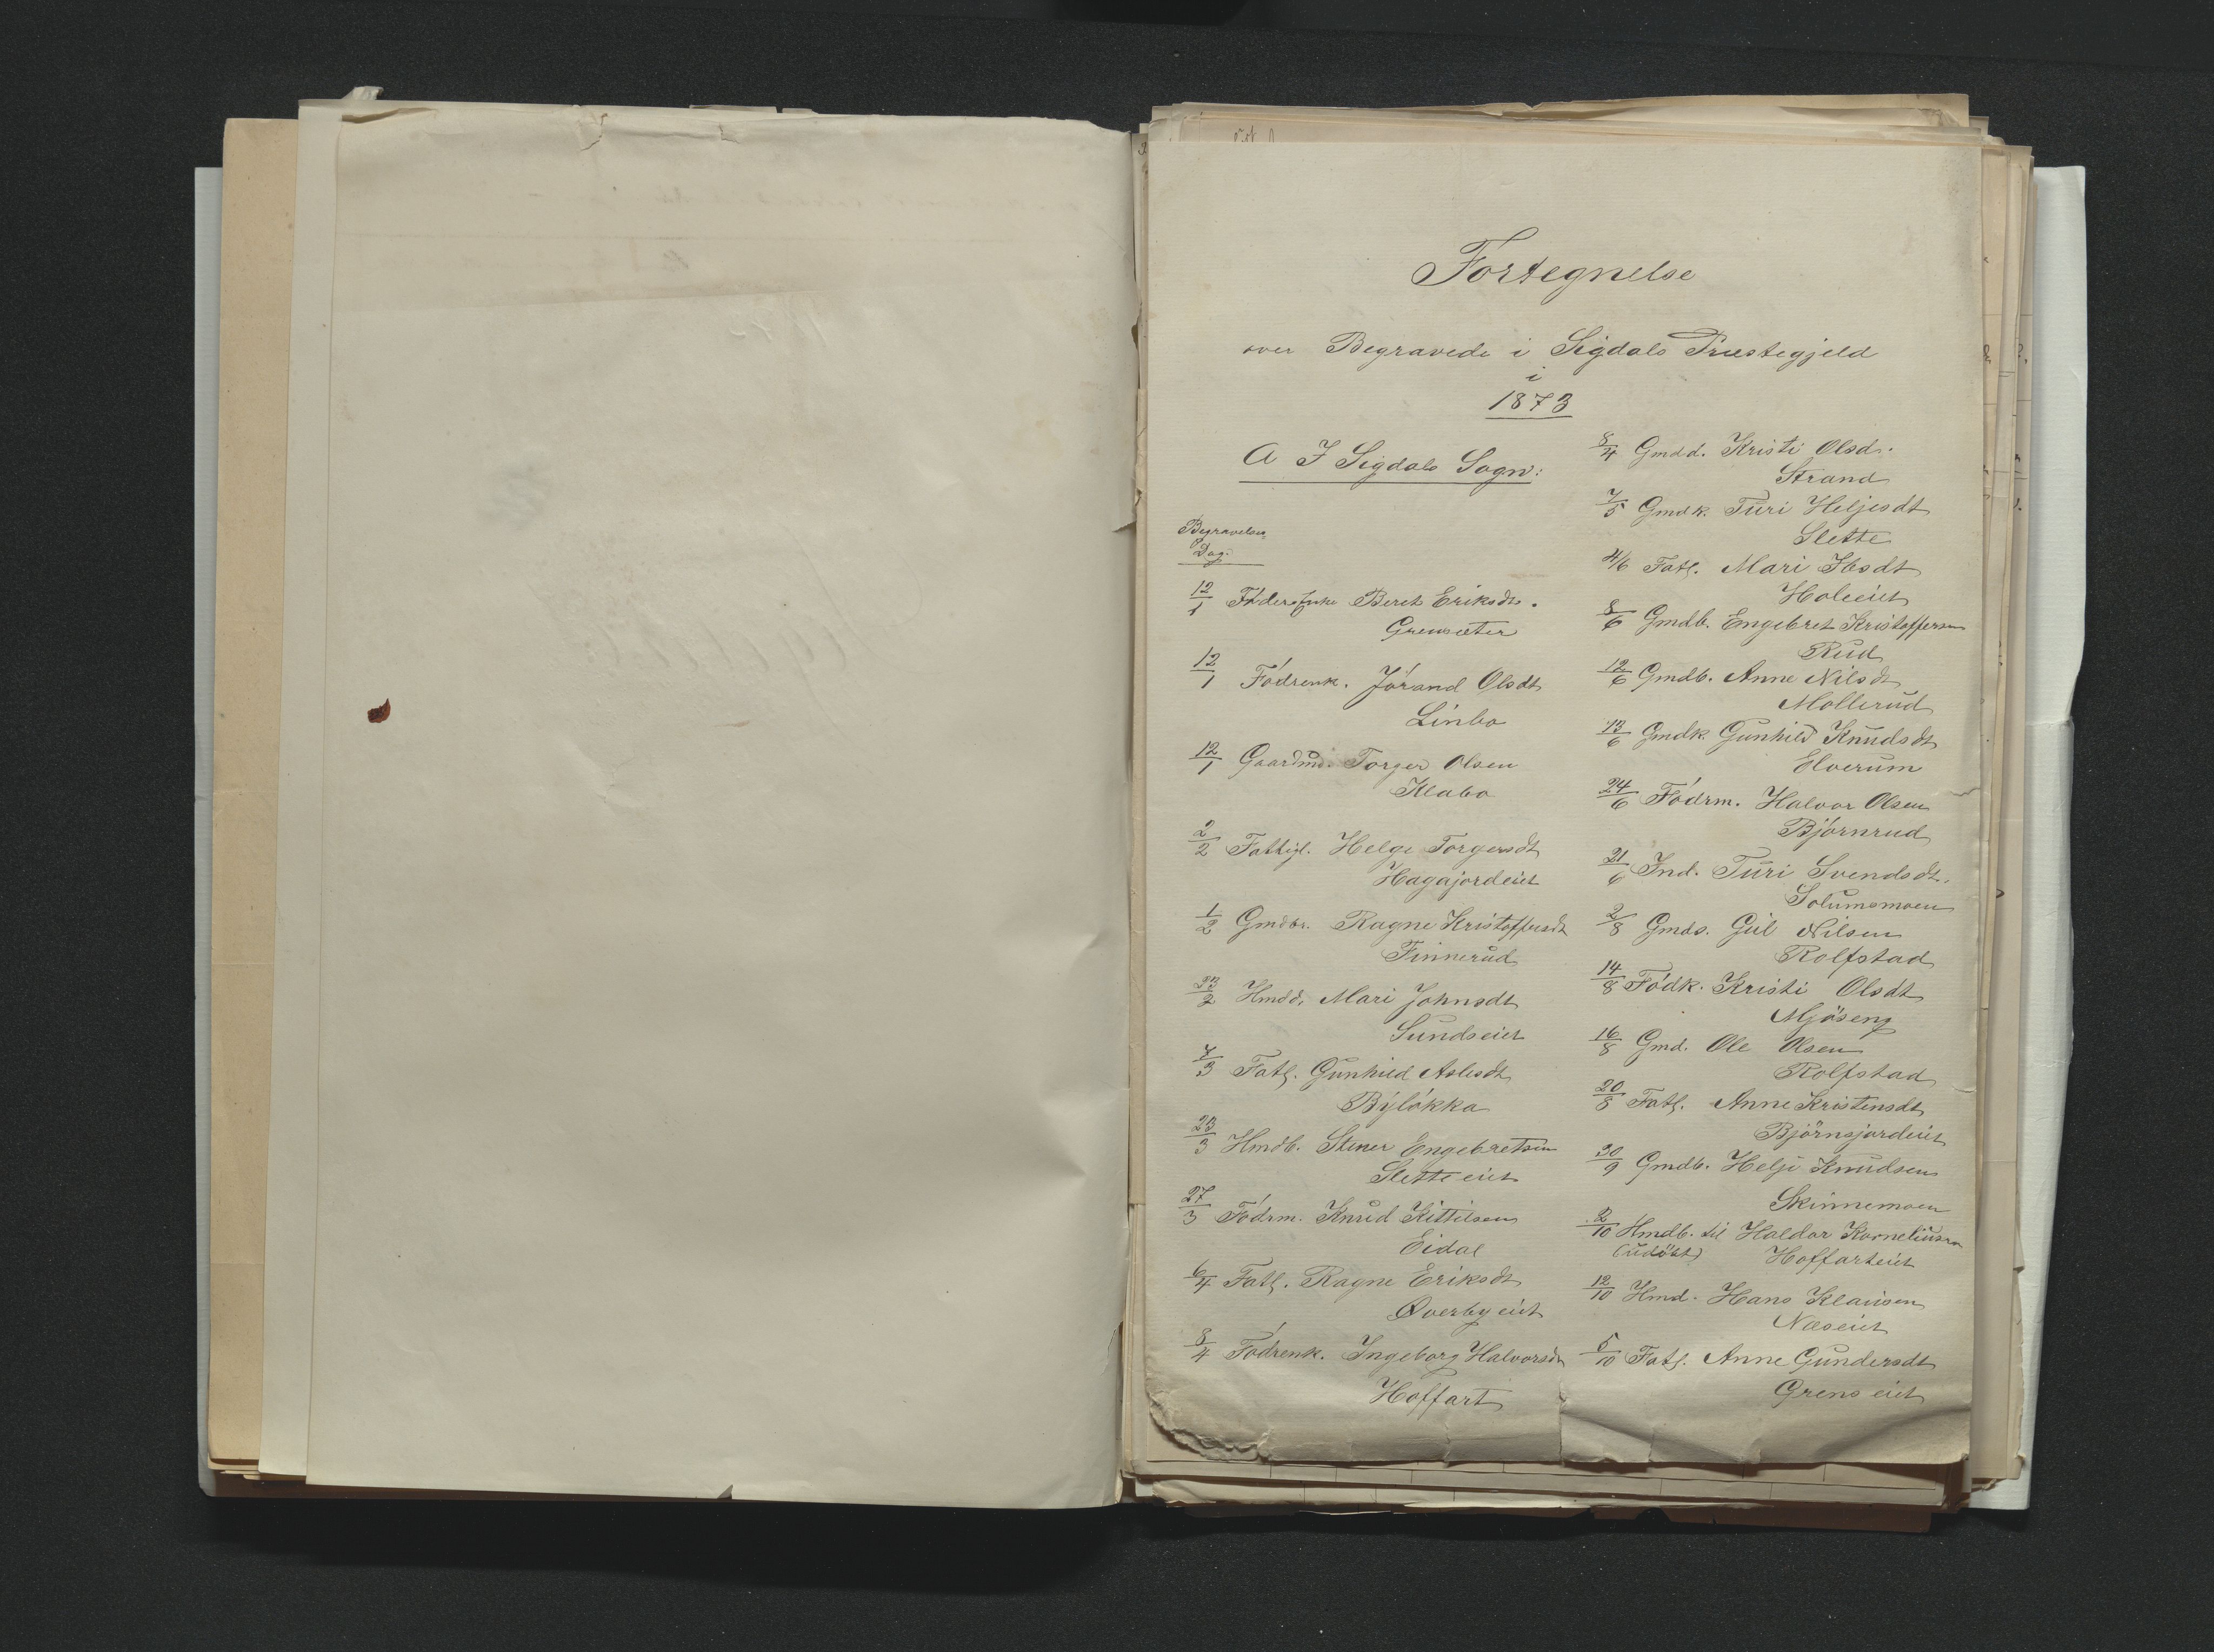 Fortegnelse
over Begravede i Sigdals Præstegjeld
i
1873
A I Sigdals Sogn:
Begravelses
Dag.
12/1 Føderaf Beret Eriksdt.
Grensæter
12/1 Födrenk. Jörand Olsdt
Linbo
12/1 Gaardm. Torger Olsen
Klabo
2/2 Fattigl. Helge Torgersdt
Hagajordeiet
1/2 Gmdbr. Ragne Kristoffersdt
Finnerud
23/2 Hmdd. Mari Johnsdt
Sundseiet
7/3 Fatl. Gunhild Aslesdt
Bylökka
23/3 Hmdb. Stener Engebretsen
Sletteeiet
27/3 Födrm. Knud Kittilsen
Eidal
6/4 Fatl. Ragne Eriksdt
Overbyeiet
8/4 Födrenk. Ingeborg Halvorsdt
Hoffart
8/4 Gmdd. Kristi Olsd.
Strand
7/5 Gmdk. Turi Heljesdt
Slette
4/6 Fatl. Mari Ibsdt
Holeeiet
8/6 Gmdb. Engebret Kristoffersen
Rud
12/6 Gmdb. Anne Nilsdt
Mollerud
13/6 Gmdk. Gunhild Knudsdt
Elverum
24/6 Födrm. Halvor Olsen
Björnrud
21/6 Ind. Turi Svendsdt.
Solumsmoen
2/8 Gmds. Gul Nilsen
Rolfstad
14/8 Födk. Kristi Olsdt
Mjöseng
16/8 Gmd. Ole Olsen
Rolfstad
20/8 Fatl. Anne Kristensdt
Björnsjordeiet
30/9 Gmdb. Helje Knudsen
Skinnemoen
2/10 Hmdb. til Haldor Korneliusen
(udöbt) Hoffarteiet
12/10 Hmd. Hans Klausen
Næseiet
5/10 Fatl. Anne Gundersdt
Grenseiet